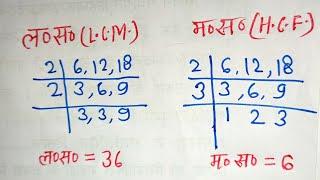 ल०स० (L.C.M.)
2 | 6, 12, 18
2 | 3, 6, 9
3, 3, 9
ल०स० = 36
म०स० (H.C.F.)
2 | 6, 12, 18
3 | 3, 6, 9
1 2 3
म०स० = 6